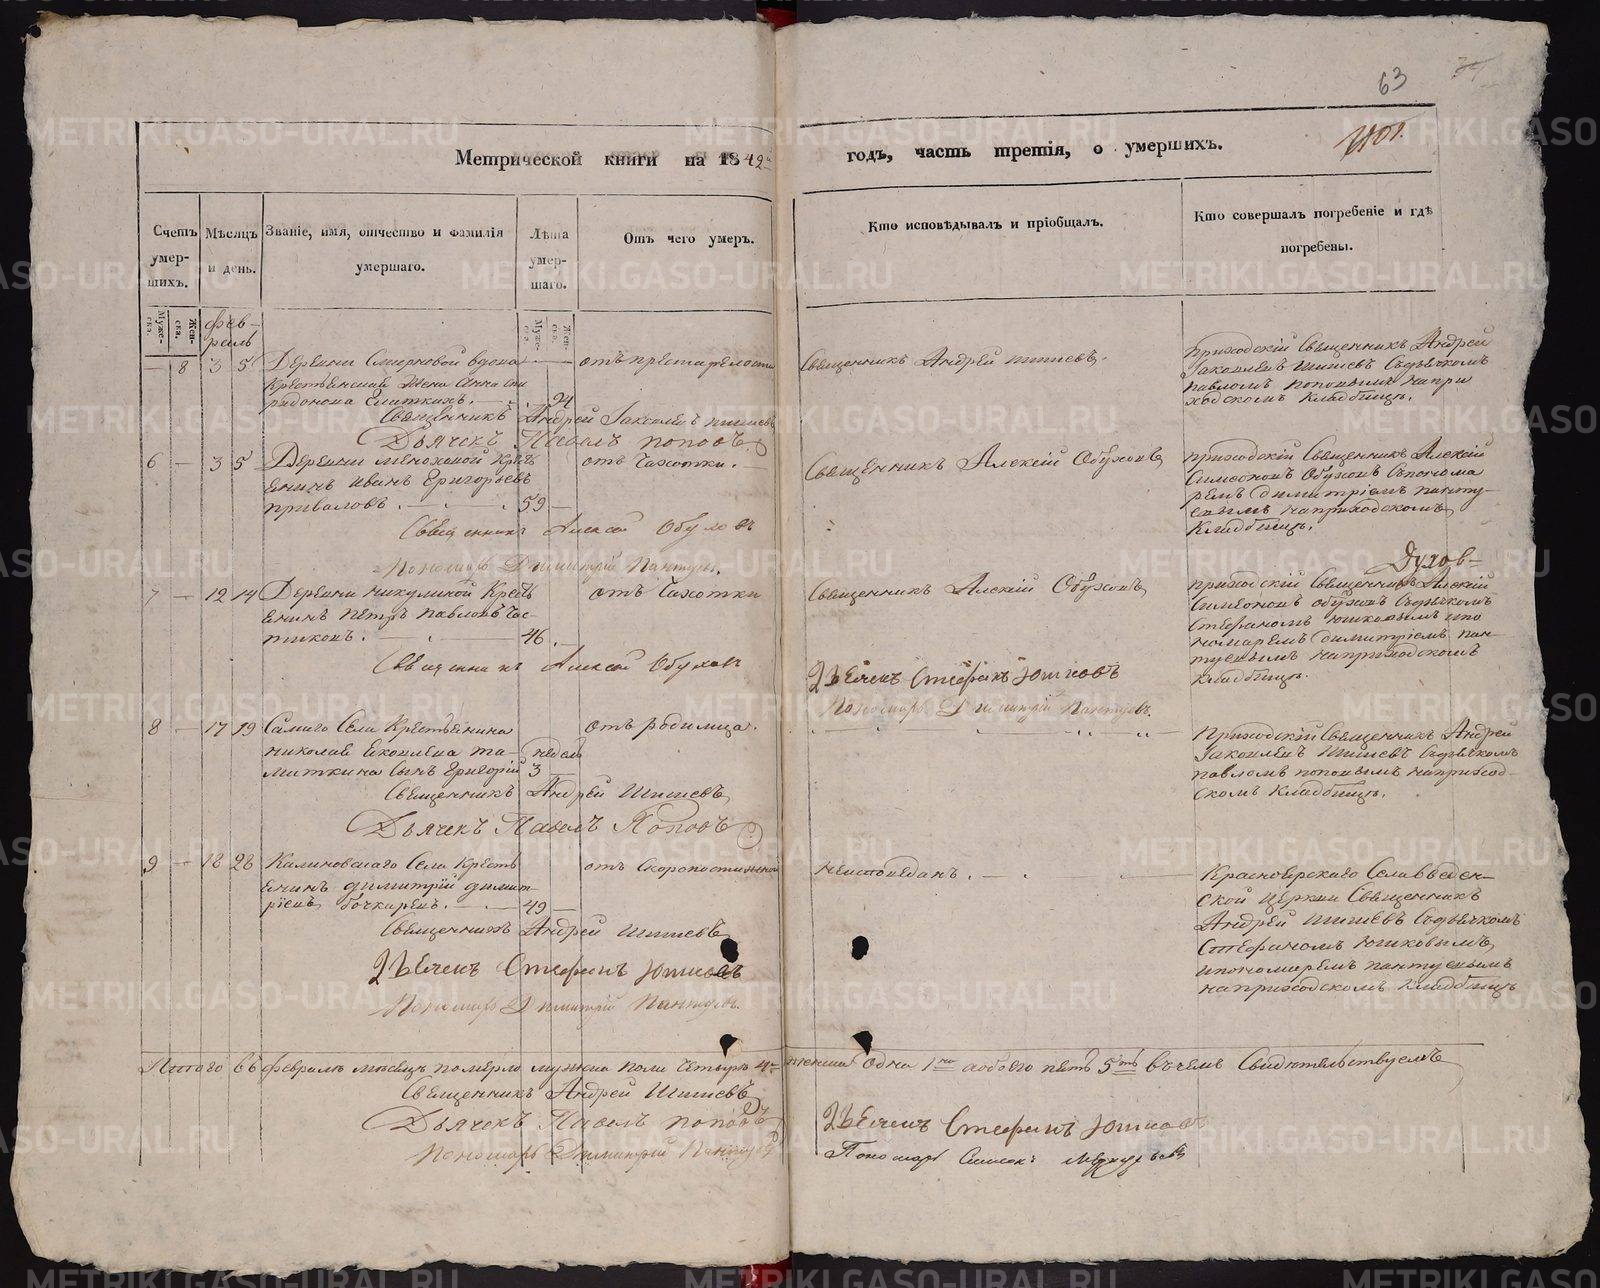 63
Метрической книги на 1842 годъ, часть третія, о умершихъ.
Счетъ умер-
шихъ.
Мѣсяцъ
и день.
Званіе, имя, отчество и фамилія
умершаго.
Лѣта
умер-
шаго.
Отъ чего умеръ.
Кто исповѣдывалъ и пріобщалъ.
Кто совершалъ погребеніе и гдѣ
погребены.
Муже-
ска.
Жен-
ска.
Фев-
раль
Муже-
ска.
Жен-
ска.
8 3 5 Деревни Смирновой вдова
крестьянская жена Анна Спи
ридонова 94
отъ престарелости
Священникъ Андрей
Приходскій Священникъ Андрей
Іаковлевъ Съ дьячкомъ
Павломъ Поповымъ на при
ходскомъ кладбищѣ.
Священникъ Андрей Іаковлевъ
Дьячекъ Павелъ Поповъ
6 3 5 Деревни Крестъ
янинъ Иванъ Григорьевъ
Приваловъ. 59
отъ Чахотки.
Священникъ Алексій Обуховъ
Приходскій Священникъ Алексій
Симеоновъ Обуховъ Съ понома
ремъ Димитріемъ Панту-
евымъ на приходскомъ
кладбищѣ.
Священникъ Алексей Обуховъ
Пономарь Димитрій Пантуевъ.
Духов-
7 12 14 Деревни Никулиной Кресть
янинъ Петръ Павловъ Чис-
тяковъ. 46
отъ Чахотки
Священникъ Алексій Обуховъ
Приходскій Священникъ Алексій
Симеоновъ Обуховъ Съ дьячкомъ
Стефаномъ Юшковымъ и по
номаремъ Димитріемъ Пан-
туевымъ на приходскомъ
кладбищѣ.
Священникъ Алексей Обуховъ
Дьячекъ Стефанъ Юшковъ
Пономарь Димитрій Пантуевъ.
8 17 19 Самаго Села Крестьянина
Николая Яковлева Та-
миткина Сынъ Григорій
недель
3
отъ родимца.
Приходскій Священникъ Андрей
Іаковлевъ Съ дьячкомъ
Павломъ Поповымъ на приход-
скомъ кладбищѣ.
Священникъ Андрей
Дьячекъ Павелъ Поповъ
9 18 28 Калиновскаго Села Кресть
янинъ Димитрій Димит-
ріевъ Бочкаревъ. 49
отъ Скоропостижной
неисповеданъ.
Красноярскаго Села Введен-
ской Церкви Священникъ
Андрей Съ дьячкомъ
Стефаномъ Юшковымъ
и пономаремъ Пантуевымъ
на приходскомъ кладбищѣ
Священникъ Андрей
Дьячекъ Стефанъ Юшковъ
Пономарь Димитрій Пантуевъ.
Итого въ Февралѣ мѣсяцѣ померло мужеска пола четыре 4 женска одна 1 а обоего пять 5 въ чемъ Свидѣтельствуемъ
Священникъ Андрей
Дьячекъ Павелъ Поповъ
Пономарь Димитрій Пантуевъ
Дьячекъ Стефанъ Юшковъ
Пономарь
METRIKI.GASO-URAL.RU